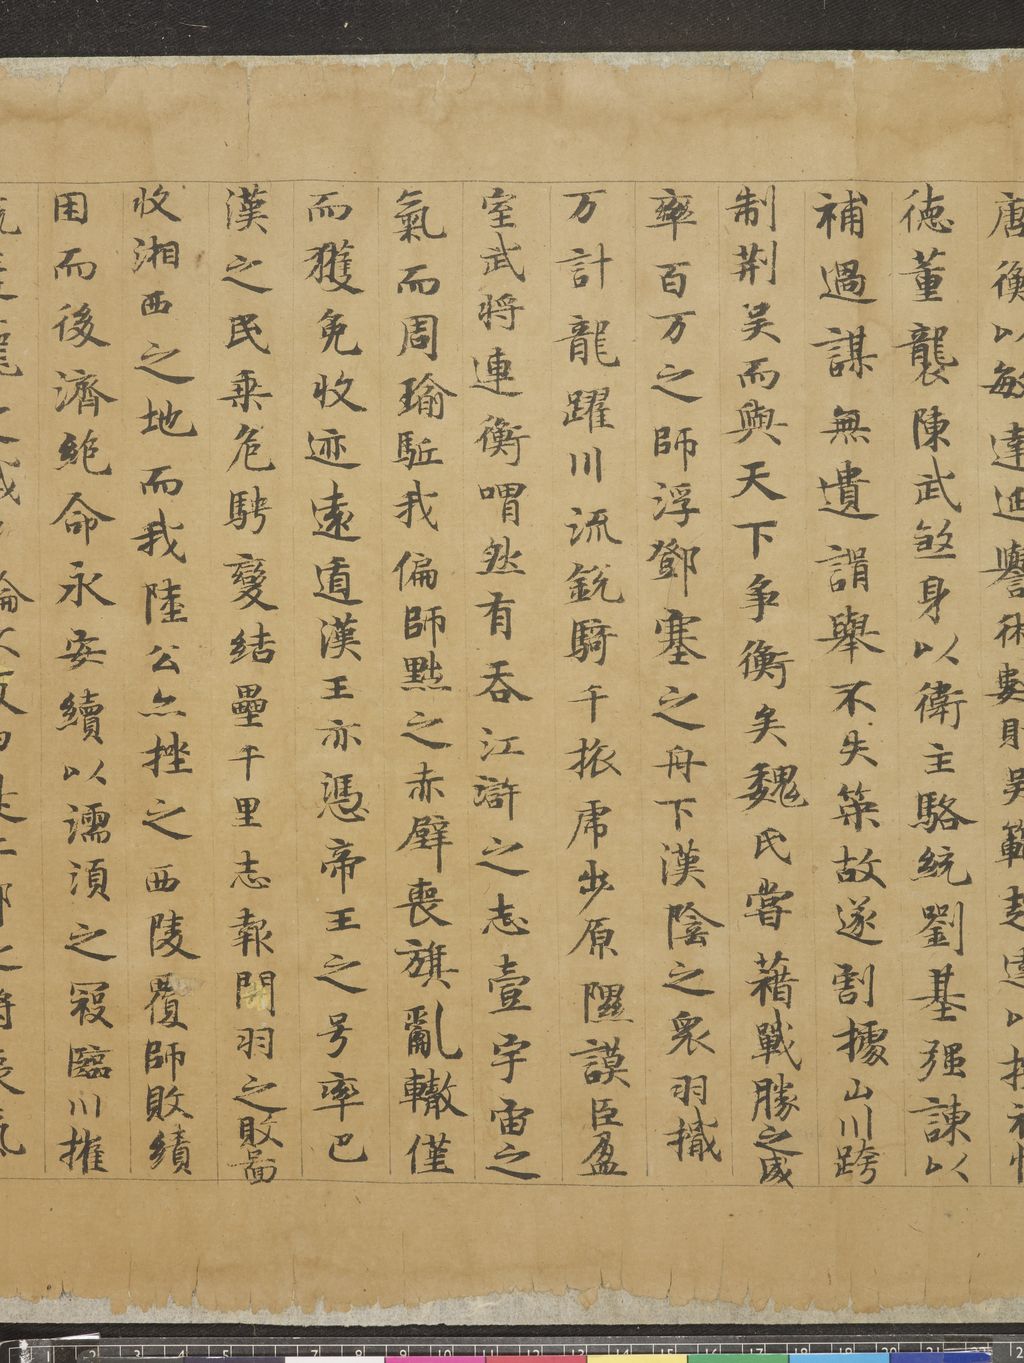 衡以敏達延譽術數則吳範趙達以機祥恊
德董襲陳武煞身以衛主駱統劉基强諌以
補過謀無遺諝舉不失䇿故遂割據山川跨
制荆吴而與天下争衡矣魏氏嘗藉戰勝之威
率百万之師浮鄧塞之舟下漢陰之衆羽檝
万計龍躍川流銳騎千旅虎步原隰謨臣盈
室武将連衡喟然有吞江滸之志壹宇宙之
氣而周瑜駈我偏師黜之赤壁喪旗亂轍僅
而獲免收迹遠遁漢王亦憑帝王之号率巴
漢之民乗危騁變結壘千里志報關羽之敗圖
收湘西之地而我陸公亦挫之西陵覆師敗績
困而後濟絶命永安續以濡湏之寇臨川摧